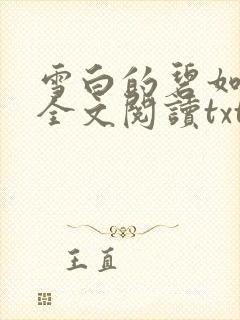 雪白的碧如
全文閱讀txt
王直